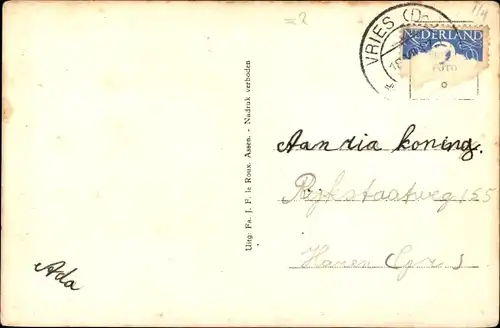 =2
1/4
VRIES (D
18
NEDERLAND
FOTO
Uitg: Fa. J. F. le Roux. Assen. - Nadruk verboden
Aan ria koning.
Rijkstaatweg 155
Haren (gr)
Ada